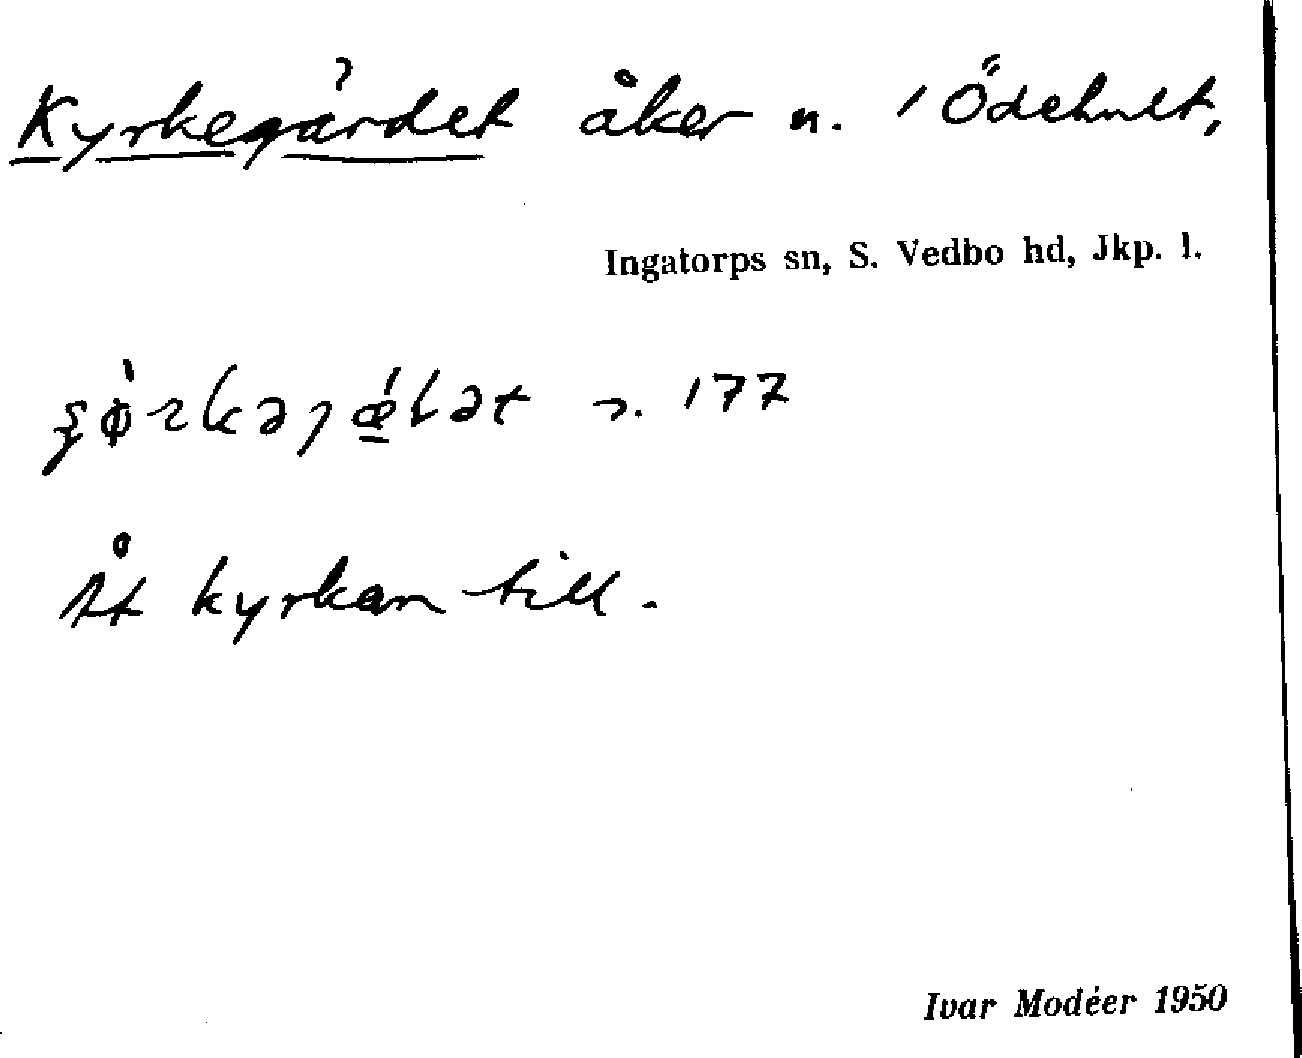 Kyrkegärdet åker n. i Ödehult,
Ingatorps sn, S. Vedbo hd, Jkp. l.
n. 177
Åt kyrkan till.
Ivar Modéer 1950